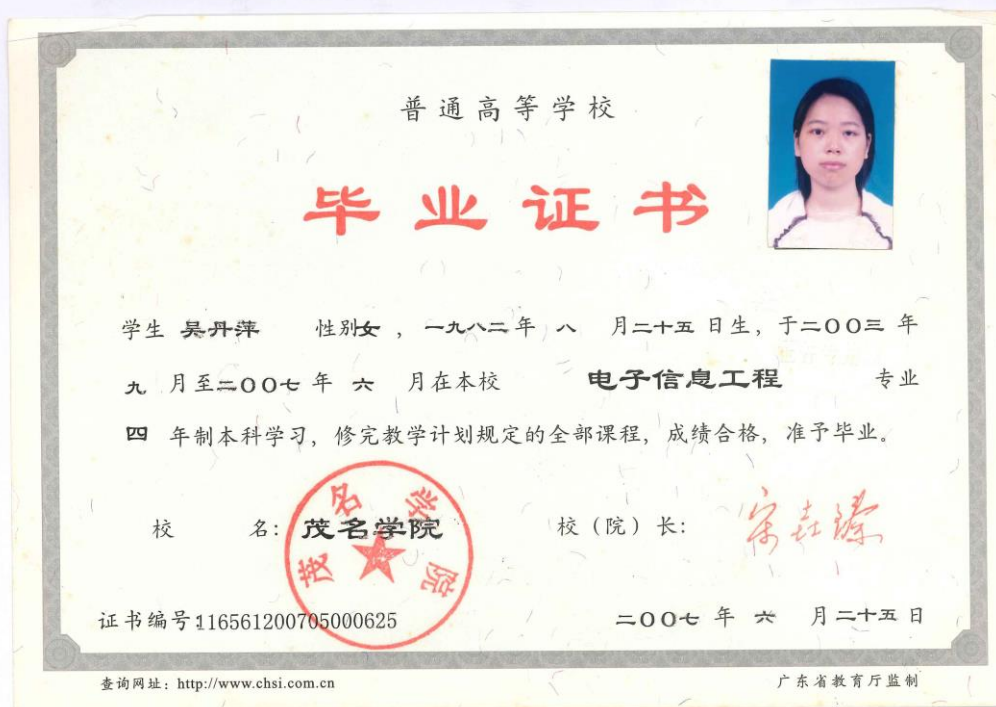 普通高等学校
毕业证书
学生 吴丹萍 性别女，一九八二年 八 月二十五日生，于二〇〇三年
九 月至二〇〇七年 六 月在本校 电子信息工程 专业
四 年制本科学习，修完教学计划规定的全部课程，成绩合格，准予毕业。
校 名：茂名学院 校（院）长：
茂名学院
证书编号：116561200705000625 二〇〇七年 六 月二十五日
查询网址：http://www.chsi.com.cn 广东省教育厅监制